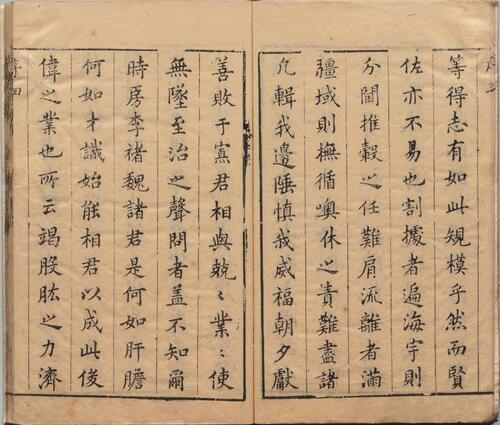 等得志有如此規模乎然而賢
佐亦不易也割據者遍海宇則
分閫推轂之任難肩流離者滿
疆域則撫循噢休之責難盡諸
凡輯我邊陲慎我威福朝夕獻
善敗于寡君相與兢〻業〻使
無墜至治之聲問者盖不知爾
時房李褚魏諸君是何如肝膽
何如才識始能相君以成此俊
偉之業也所云竭股肱之力濟